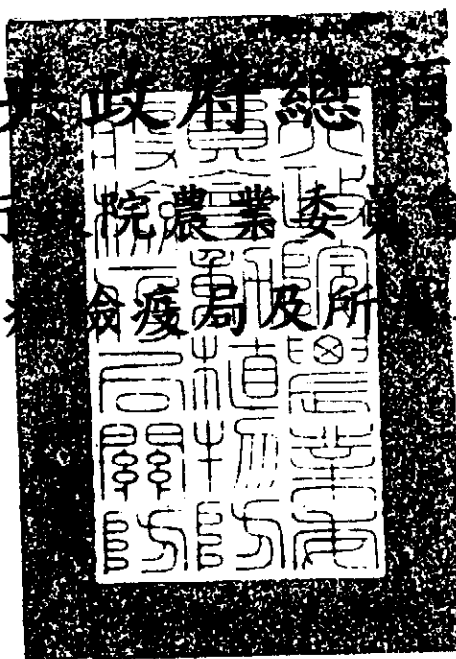 央政府總預
行政院農業委員會
疫檢疫局及所
行政院農業委
員會動植物防
疫檢疫局關防